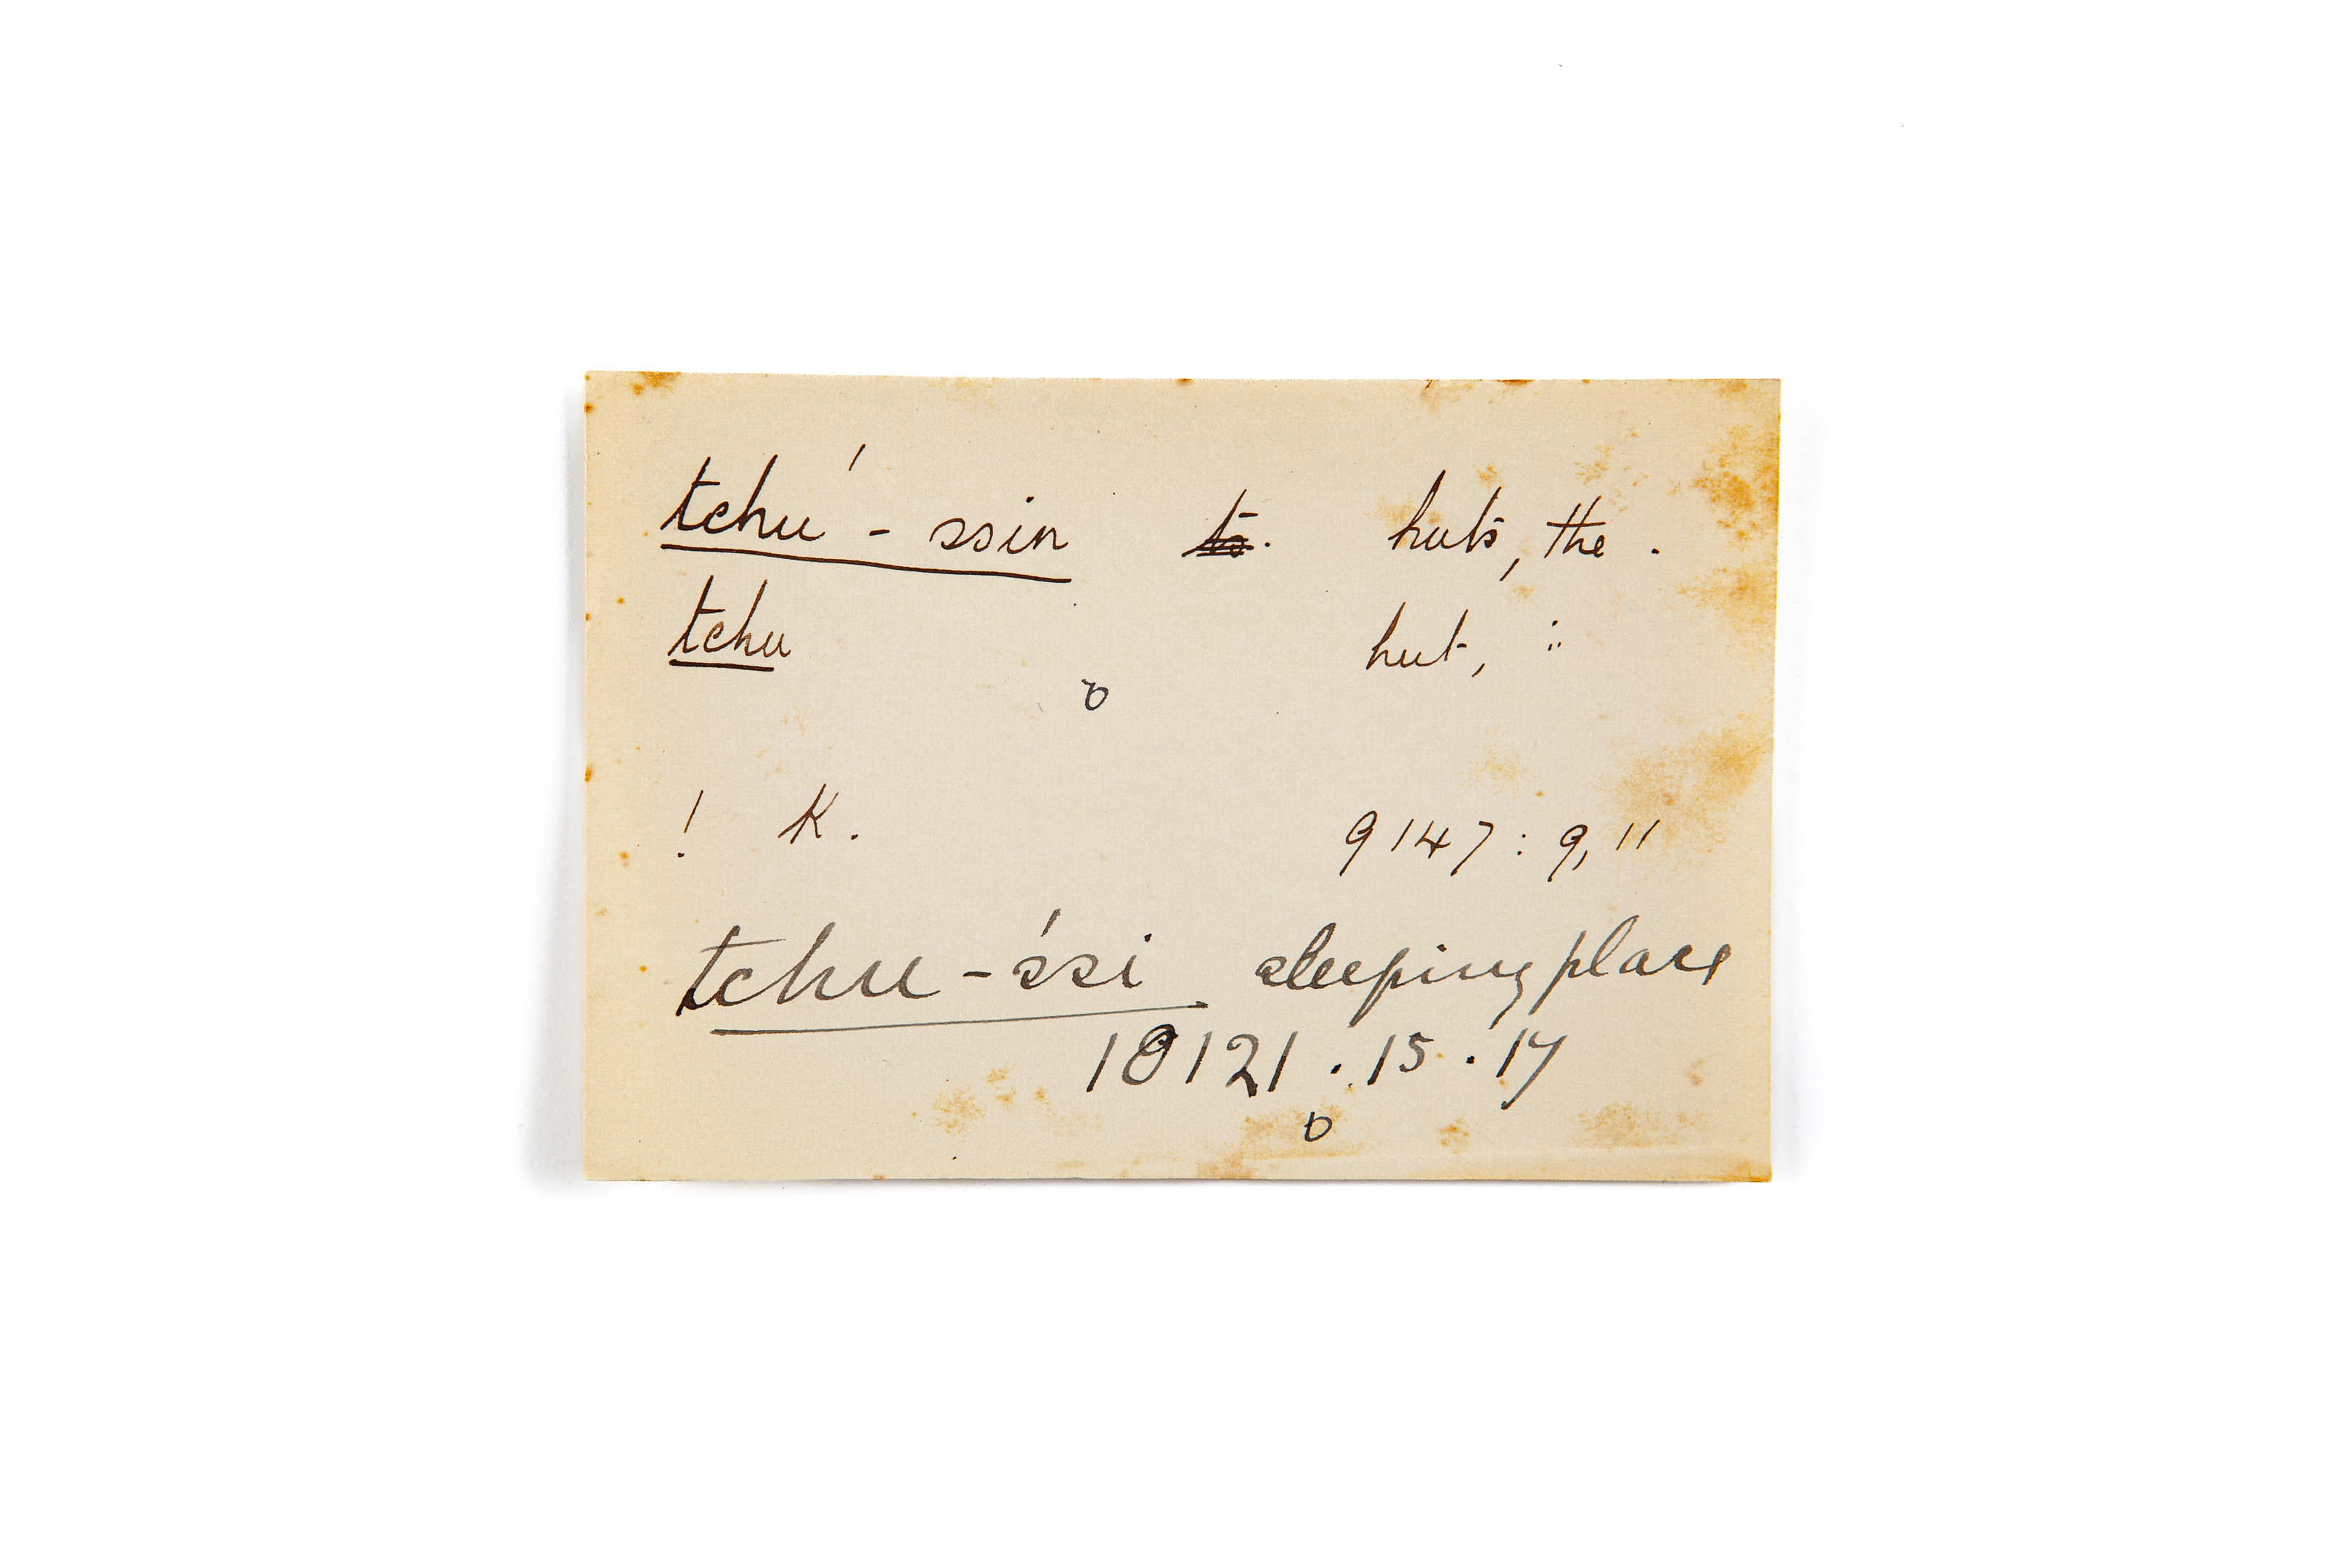 tchú - ssin huts, the .
tchu hut, "
! K. 9147 : 9, 11
tchu - śsi sleeping place
10121 . 15 . 17